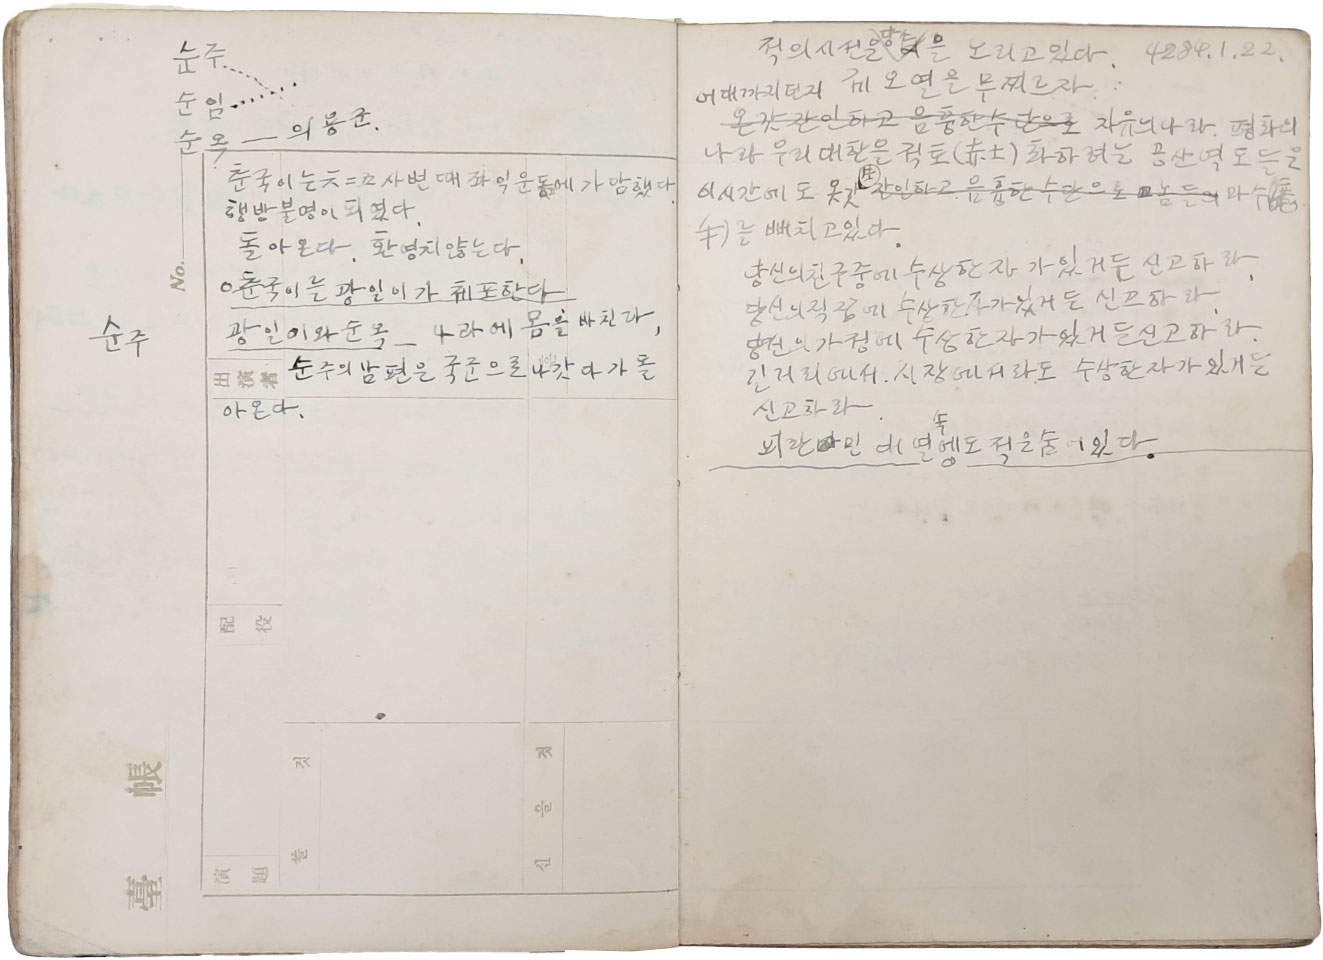 순주
순임
순옥 — 의용군.
춘국이는 六=五 사변때 좌익운동에 가담했다.
행방불명이 되였다.
돌아온다. 환영치않는다.
○춘국이를 광일이가 체포한다
광일이와순옥 — 나라에 몸을 바친다,
순주의 남편은 국군으로 나갓다가 돌
아온다.
순주
No.
出演者
配役
演題
臺帳
것
신을것
적의시선을 당신을 노리고있다. 4284.1.22.
어대까지던지 제오열을 무찌르자.
온갓 잔인하고 음흉한수단으로 자유의나라. 평화의
나라 우리대한을 적토(赤土)화하려는 공산역도들은
이시간에도 온갓 잔인하고 음흉한 수단으로 놈들의 마수(魔
手)를 뻐치고있다.
당신의친구중에 수상한자가있거든 신고하라,
당신의직장에 수상한자가있거든 신고하라,
당신의가정에 수상한자가있거든신고하라.
길거리에서. 시장에서라도 수상한자가있거든
신고하라.
피란민 대열속에도 적은숨어있다.